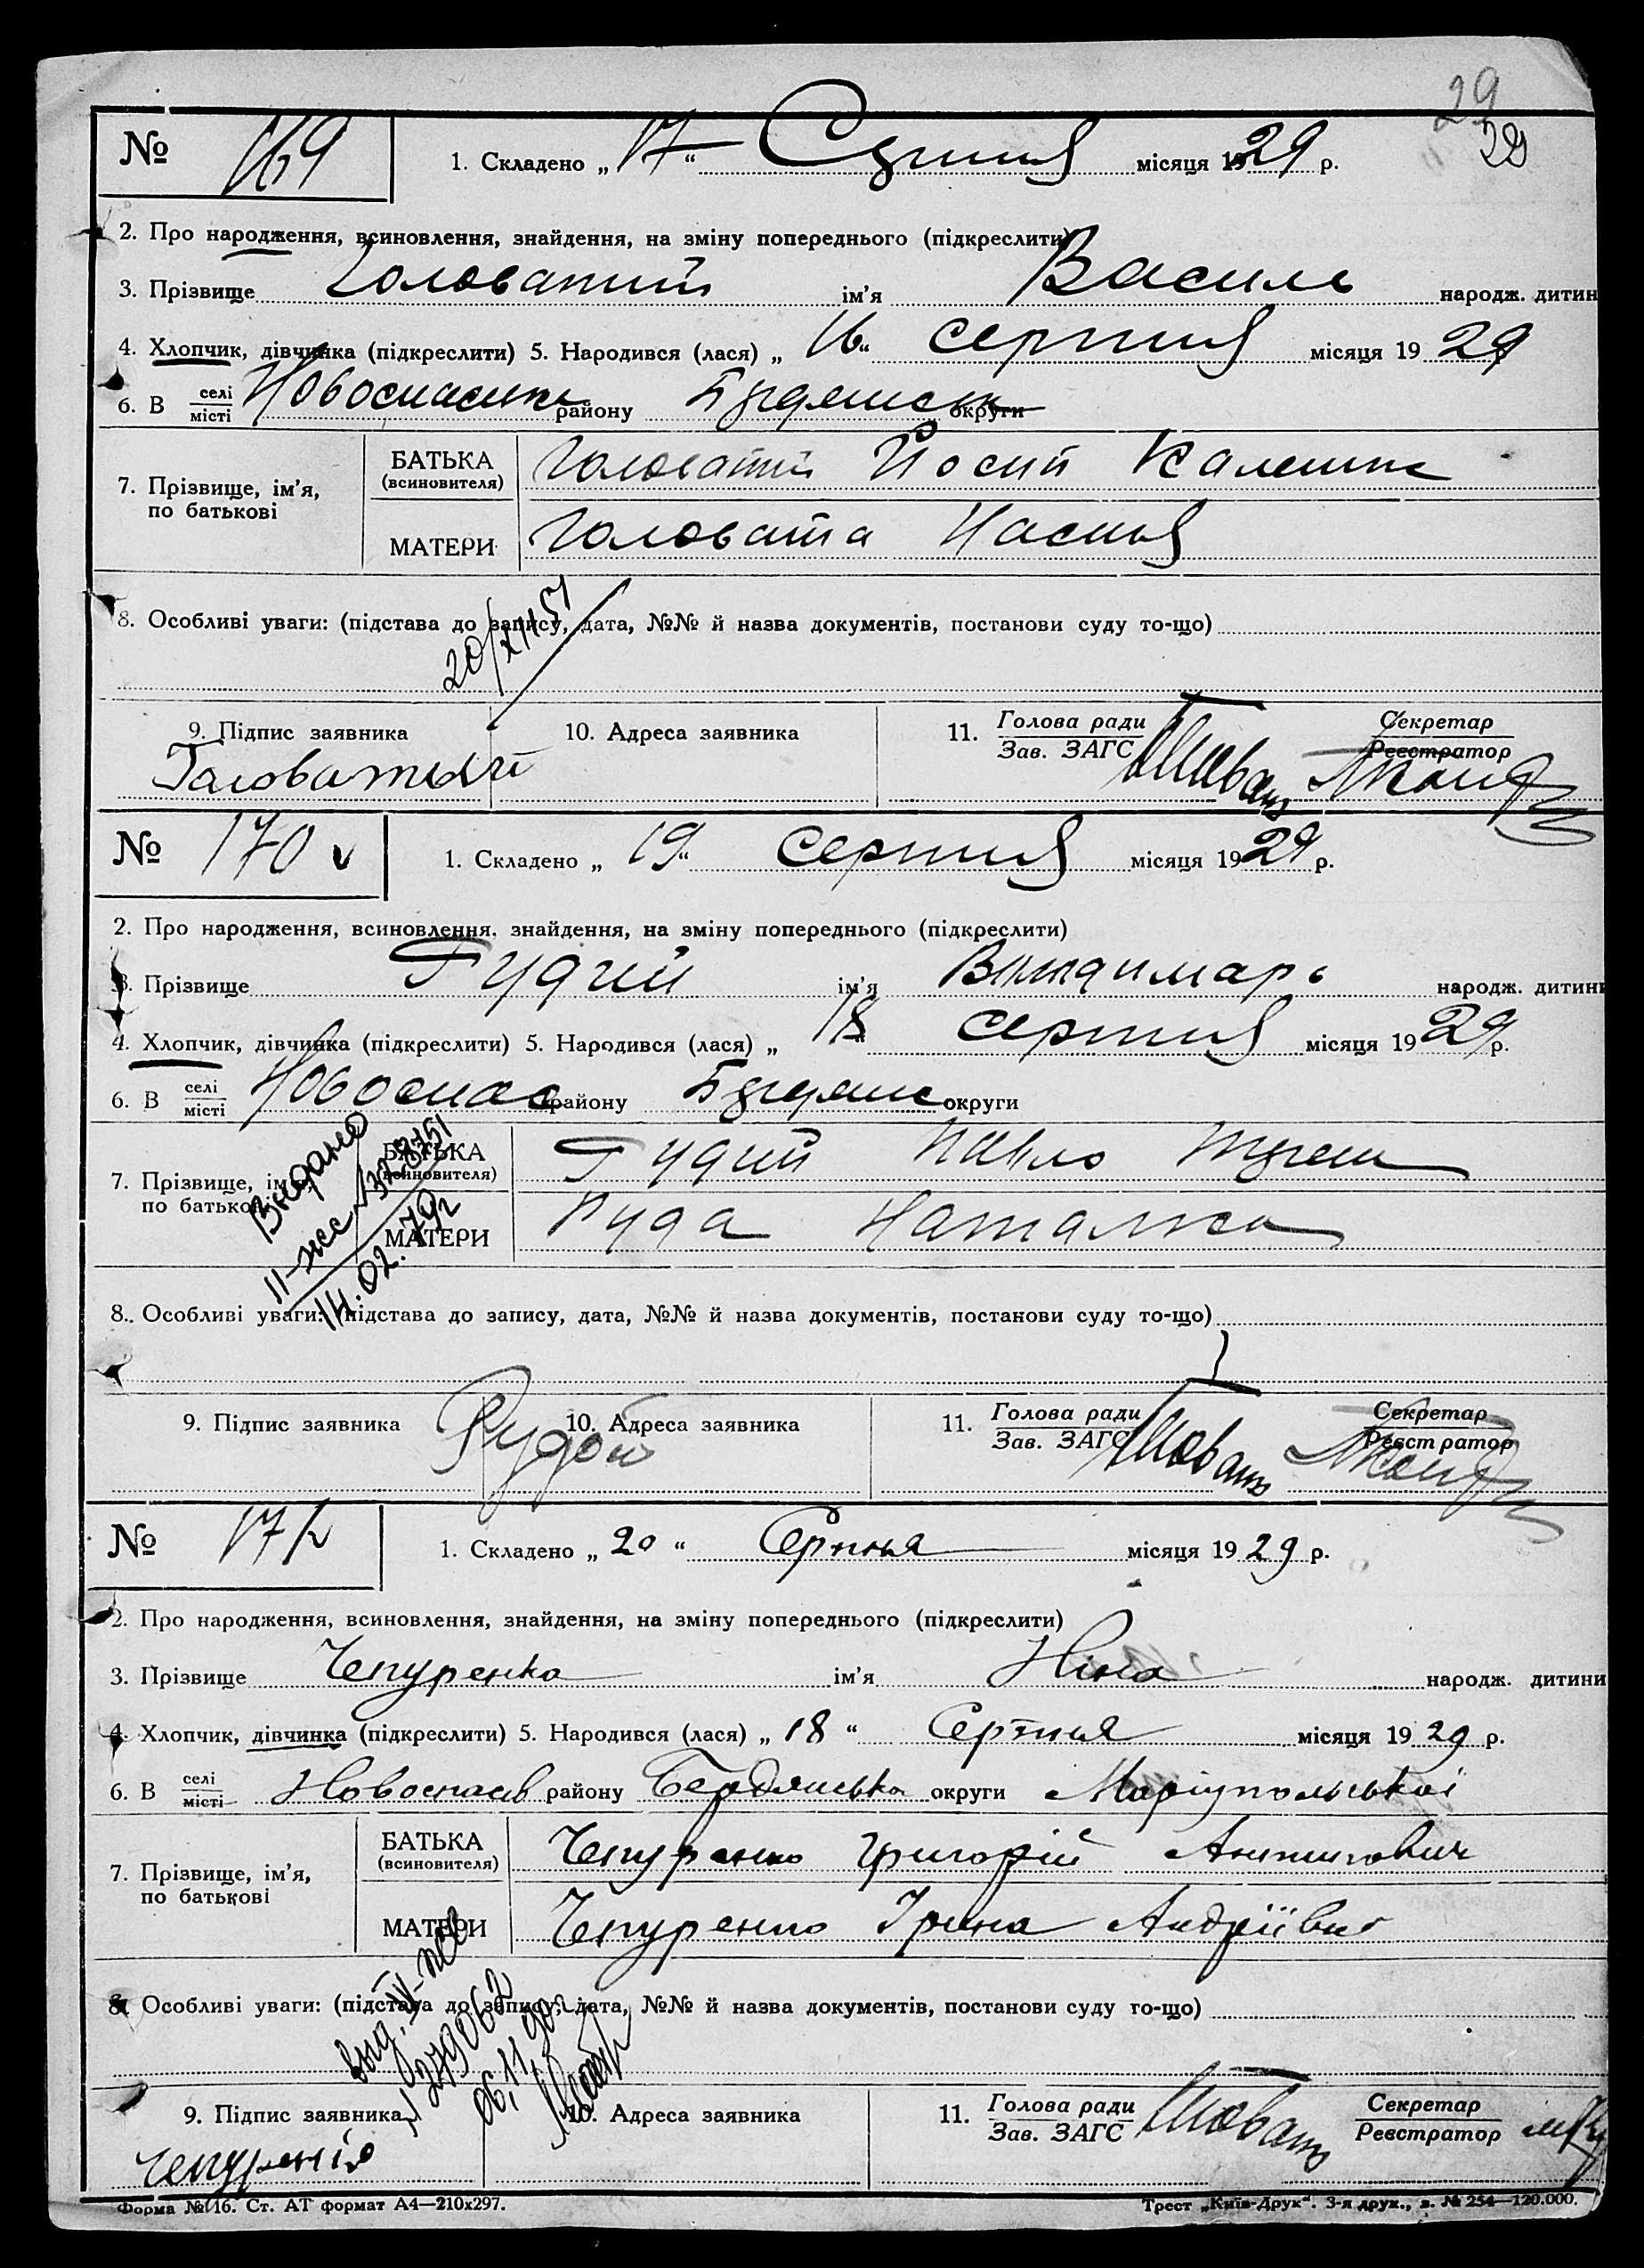 29
29
№ 169
1. Складено „ 17 “ Серпня місяця 1929 р.
2. Про народження, всиновлення, знайдення, на зміну попереднього (підкреслити)
3. Прізвище Головатий ім'я Василь народж. дитин
4. Хлопчик, дівчинка (підкреслити) 5. Народився (лася) „ 16 “ серпня місяця 19 29
6. В селі/місті Новоспаське району Бердянськ округи
7. Прізвище, ім'я, по батькові
БАТЬКА (всиновителя) Головатий Йосип
МАТЕРИ Головата Насья
8. Особливі уваги: (підстава до запису, дата, №№ й назва документів, постанови суду то-що)
20/XII 51
9. Підпис заявника 10. Адреса заявника 11. Голова ради/Зав. ЗАГС Секретар/Реєстратор
Головатый
№ 170 v
1. Складено „ 19 “ серпня місяця 1929 р.
2. Про народження, всиновлення, знайдення, на зміну попереднього (підкреслити)
3. Прізвище Рудий ім'я народж. дитини
4. Хлопчик, дівчинка (підкреслити) 5. Народився (лася) „ 18 “ серпня місяця 1929 р.
6. В селі/місті Новоспас району Бердянс округи
7. Прізвище, ім'я, по батькові
БАТЬКА (всиновителя) Рудий Павло
МАТЕРИ Руда Наталка
Выдано
II-жс № 328751
14.02.79г
8. Особливі уваги: (підстава до запису, дата, №№ й назва документів, постанови суду то-що)
9. Підпис заявника 10. Адреса заявника 11. Голова ради/Зав. ЗАГС Секретар/Реєстратор
Рудой
№ 171
1. Складено „ 20 “ Серпня місяця 1929 р.
2. Про народження, всиновлення, знайдення, на зміну попереднього (підкреслити)
3. Прізвище Чепуренко ім'я Ніна народж. дитини
4. Хлопчик, дівчинка (підкреслити) 5. Народився (лася) „ 18 “ Серпня місяця 1929 р.
6. В селі/місті Новоспасів району Бердянсько округи Маріупольської
7. Прізвище, ім'я, по батькові
БАТЬКА (всиновителя) Чепуренко Григорій
МАТЕРИ Чепуренко Ірина Андріївна
8. Особливі уваги: (підстава до запису, дата, №№ й назва документів, постанови суду то-що)
выд. IV-жс
№ 279062
06.11.90г
9. Підпис заявника 10. Адреса заявника 11. Голова ради/Зав. ЗАГС Секретар/Реєстратор
Форма № 16. Ст. АТ формат А4—210х297.
Трест „Київ-Друк“. 3-я друк., з. № 254—120.000.